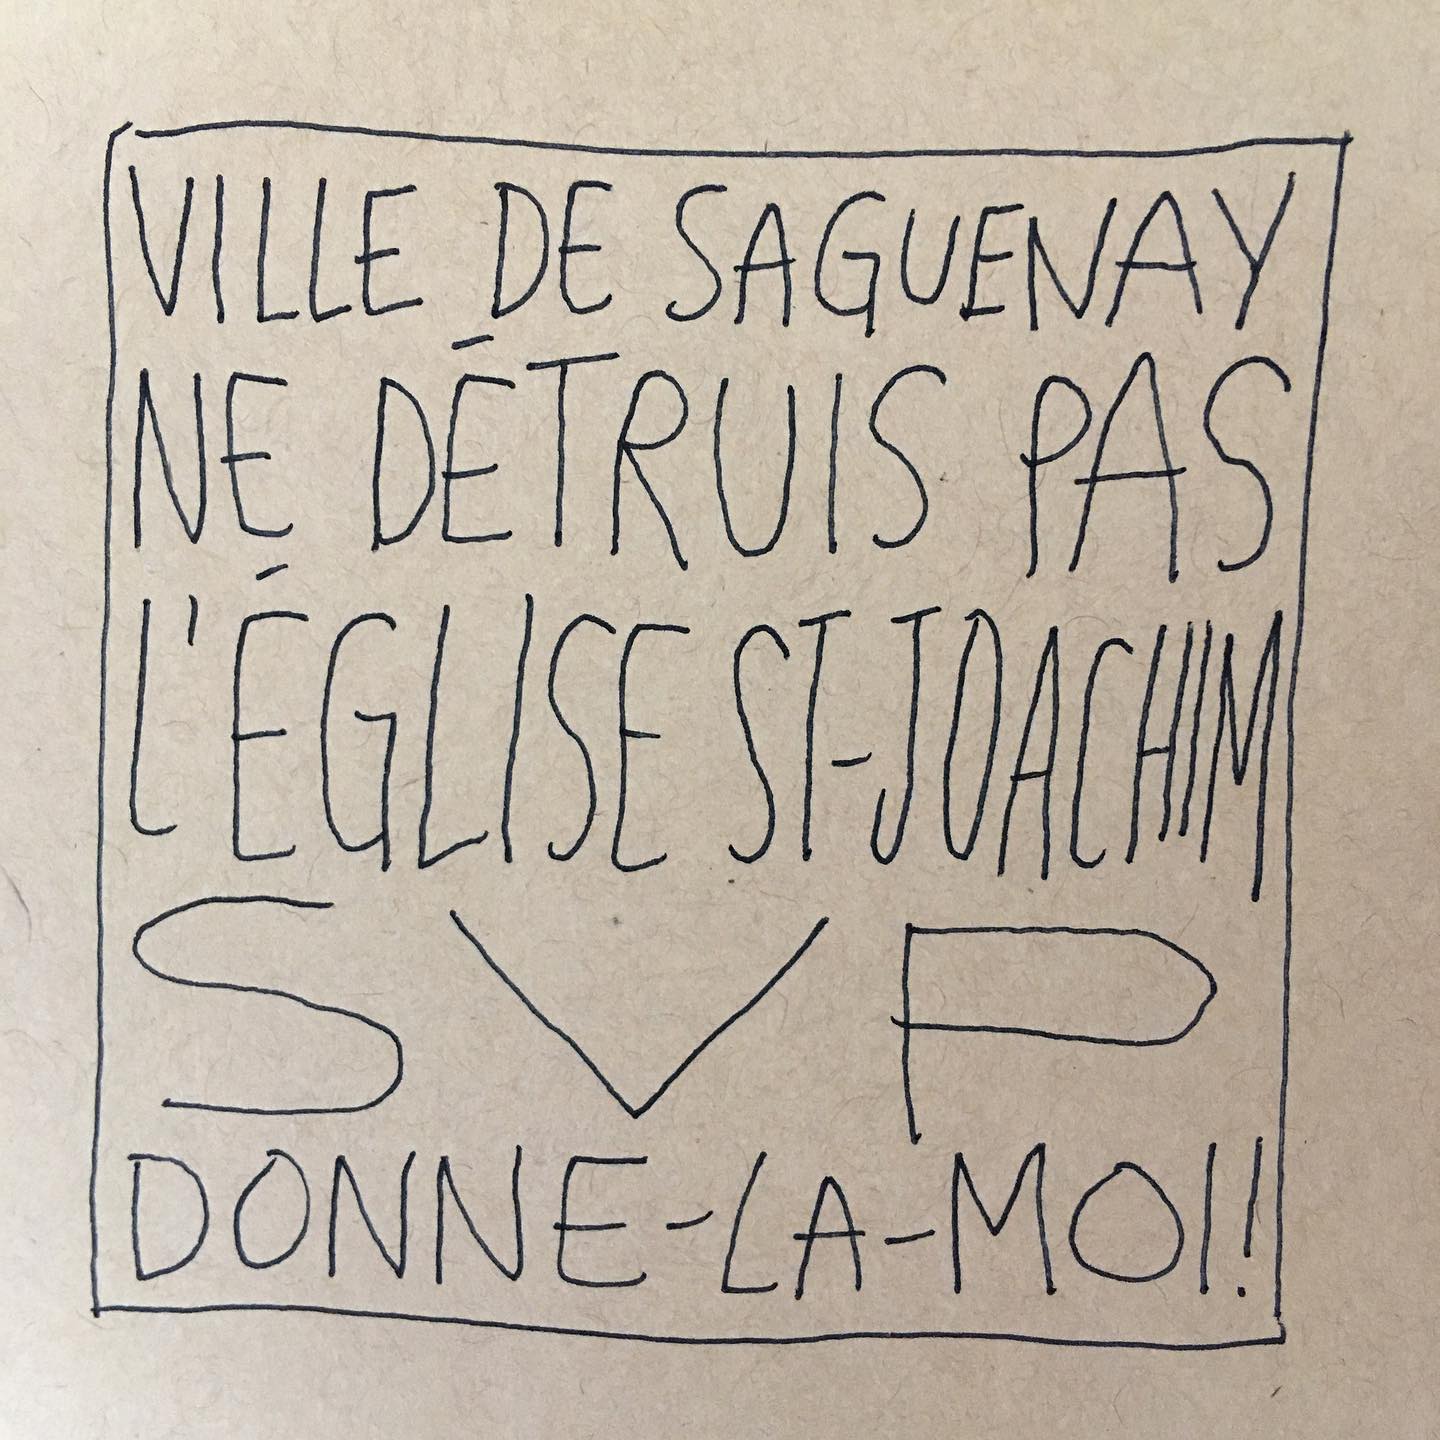 VILLE DE SAGUENAY
NE DÉTRUIS PAS
L'ÉGLISE ST-JOACHIM
SVP
DONNE-LA-MOI!